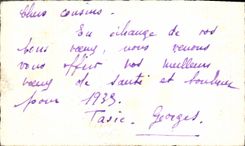 Chers cousins -
En échange de vos
bons vœux, nous venons
vous offrir nos meilleurs
vœux de santé et bonheur
pour 1939.
Georges.